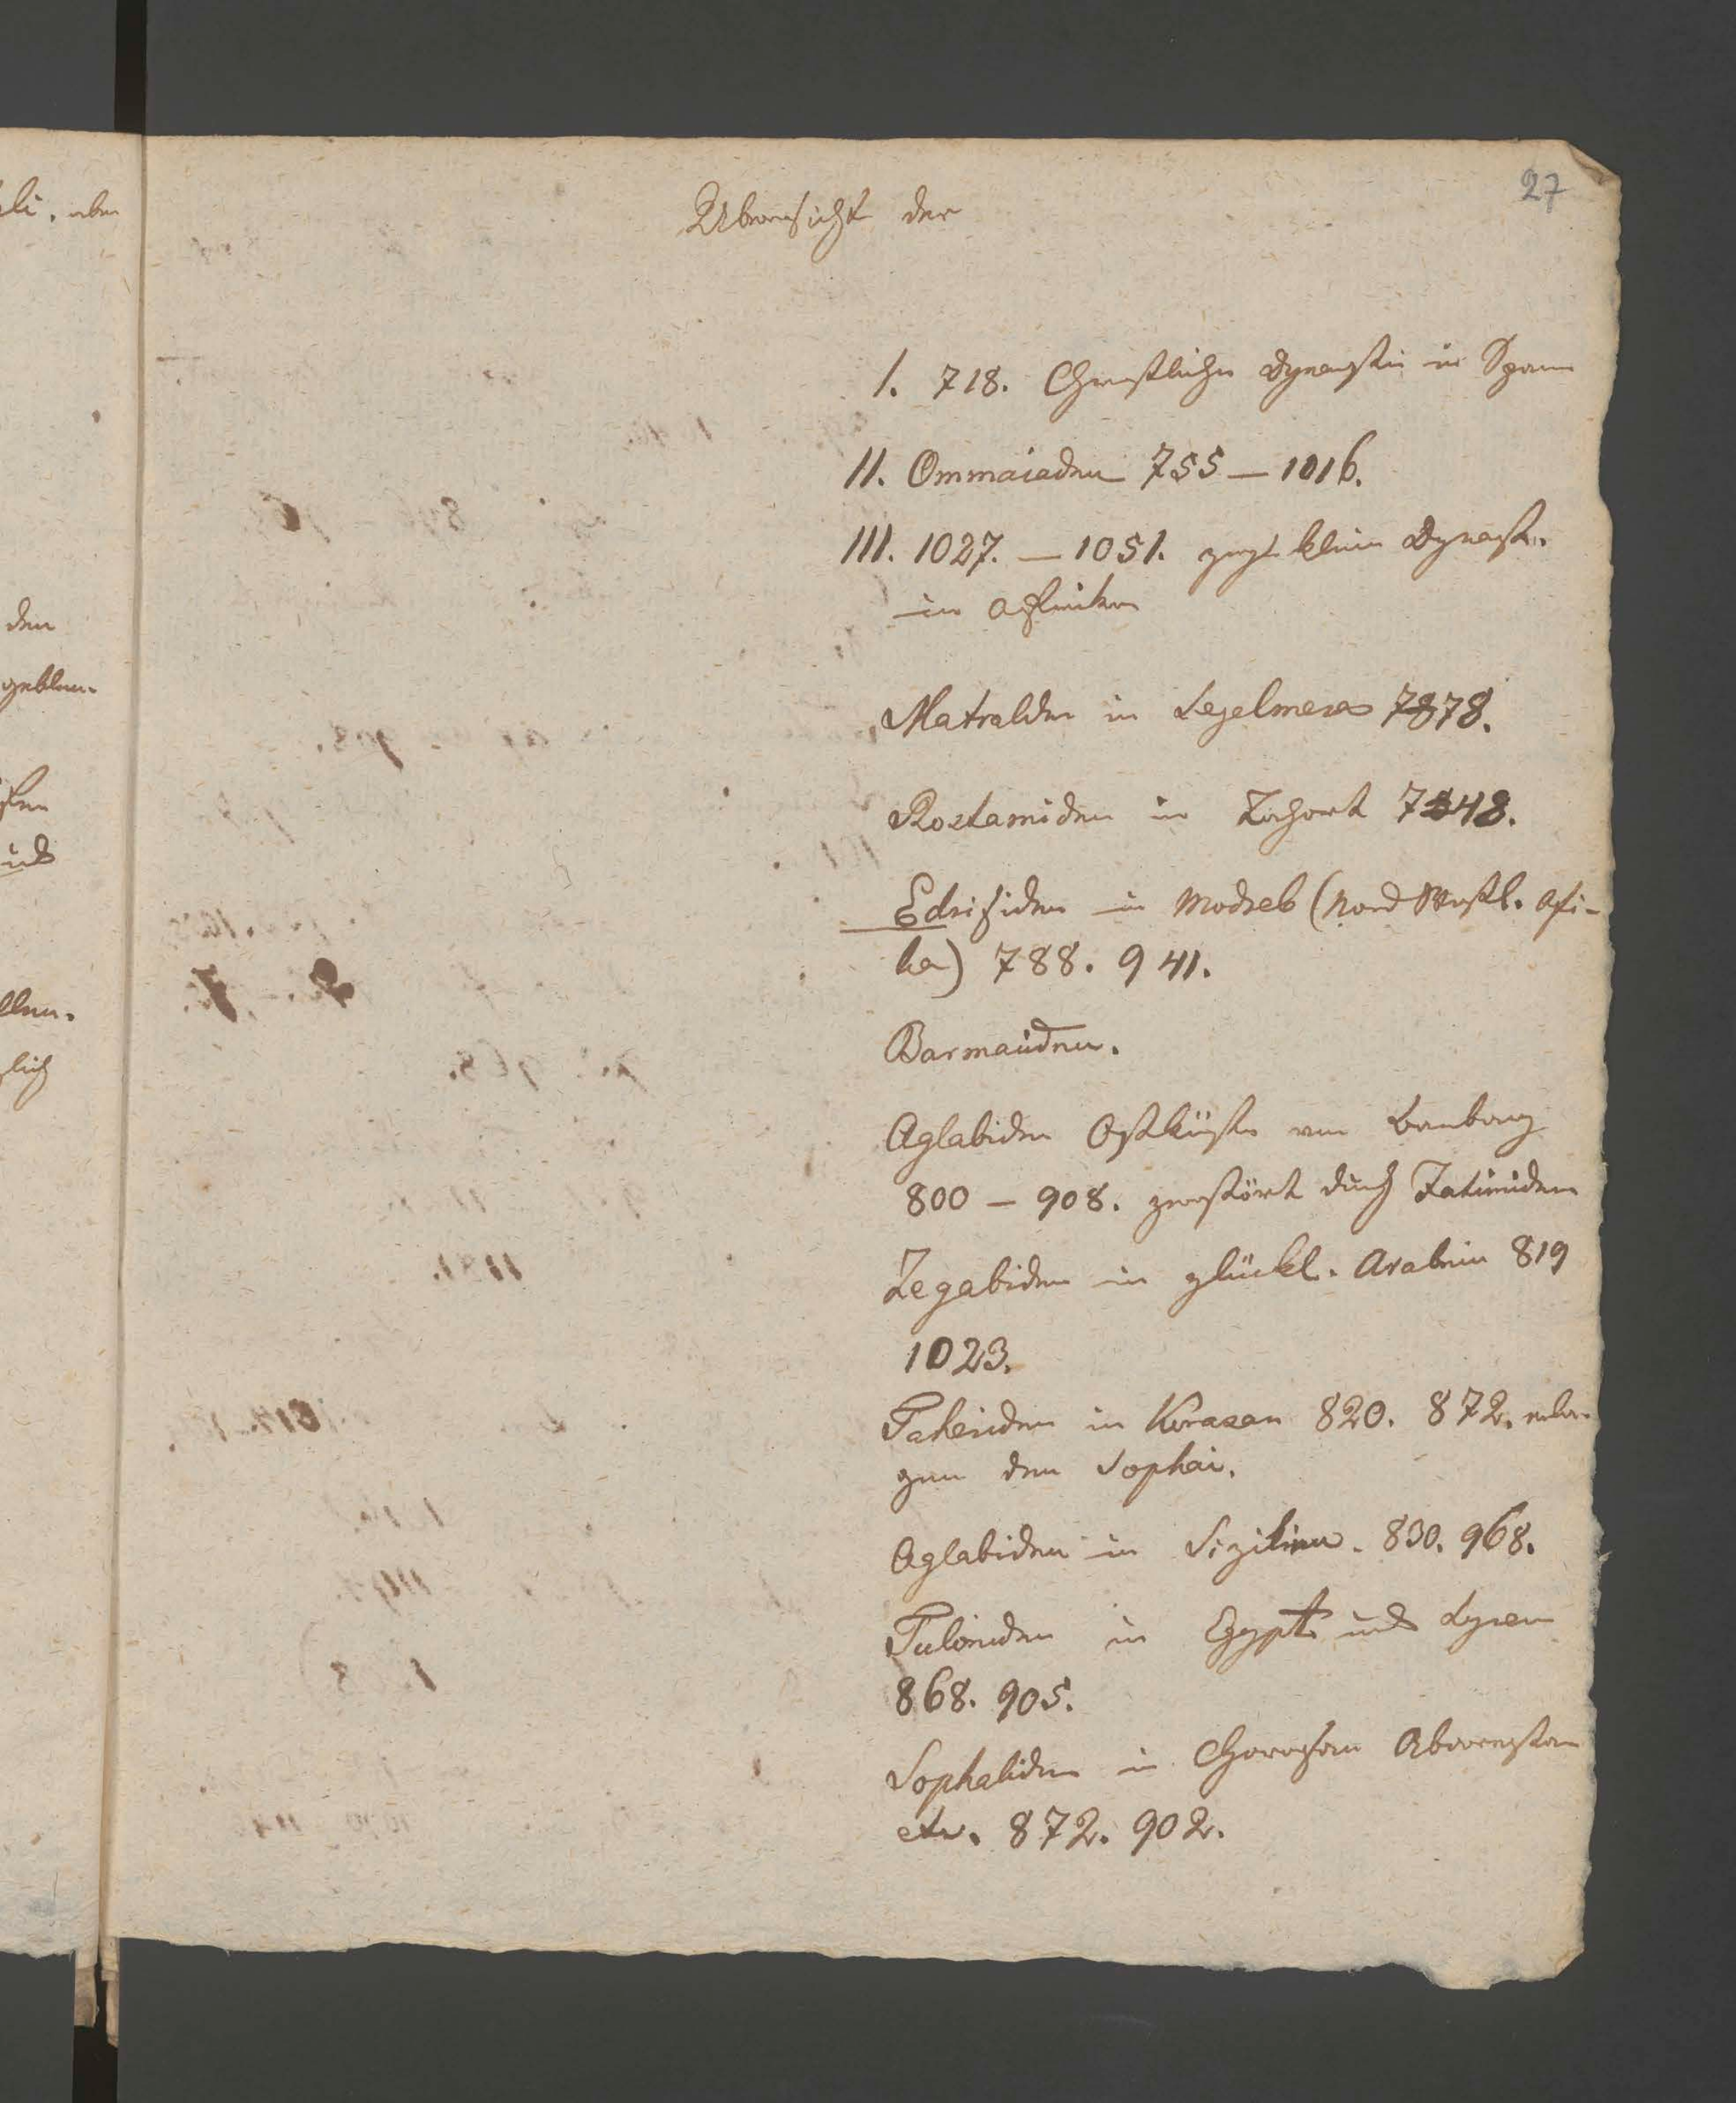 27
Übersicht der
I. 718. Christliche Dynastie in Span
II. Ommaiaden 755 – 1016.
III. 1027. – 1051. klein Dynast.
in Afrika
in 7878.
Rostamiden in Tahort 7548.
Edrisiden in Modreb (Nord Westl. Afri-
ka) 788. 941.
Barmaiiden.
Aglabiden Ostküste von
800 – 908. zerstört durch Fatimiden
Zegabiden in glückl. Arabein 819
1023.
Taheriden in Korasan 820. 872. erlie-
gen den Sophar.
Aglabiden in Sizilien. 830. 968.
Tuloniden in Egypt und Syren
868. 905.
Sophariden in Chorasan
etc. 872. 902.
den
und